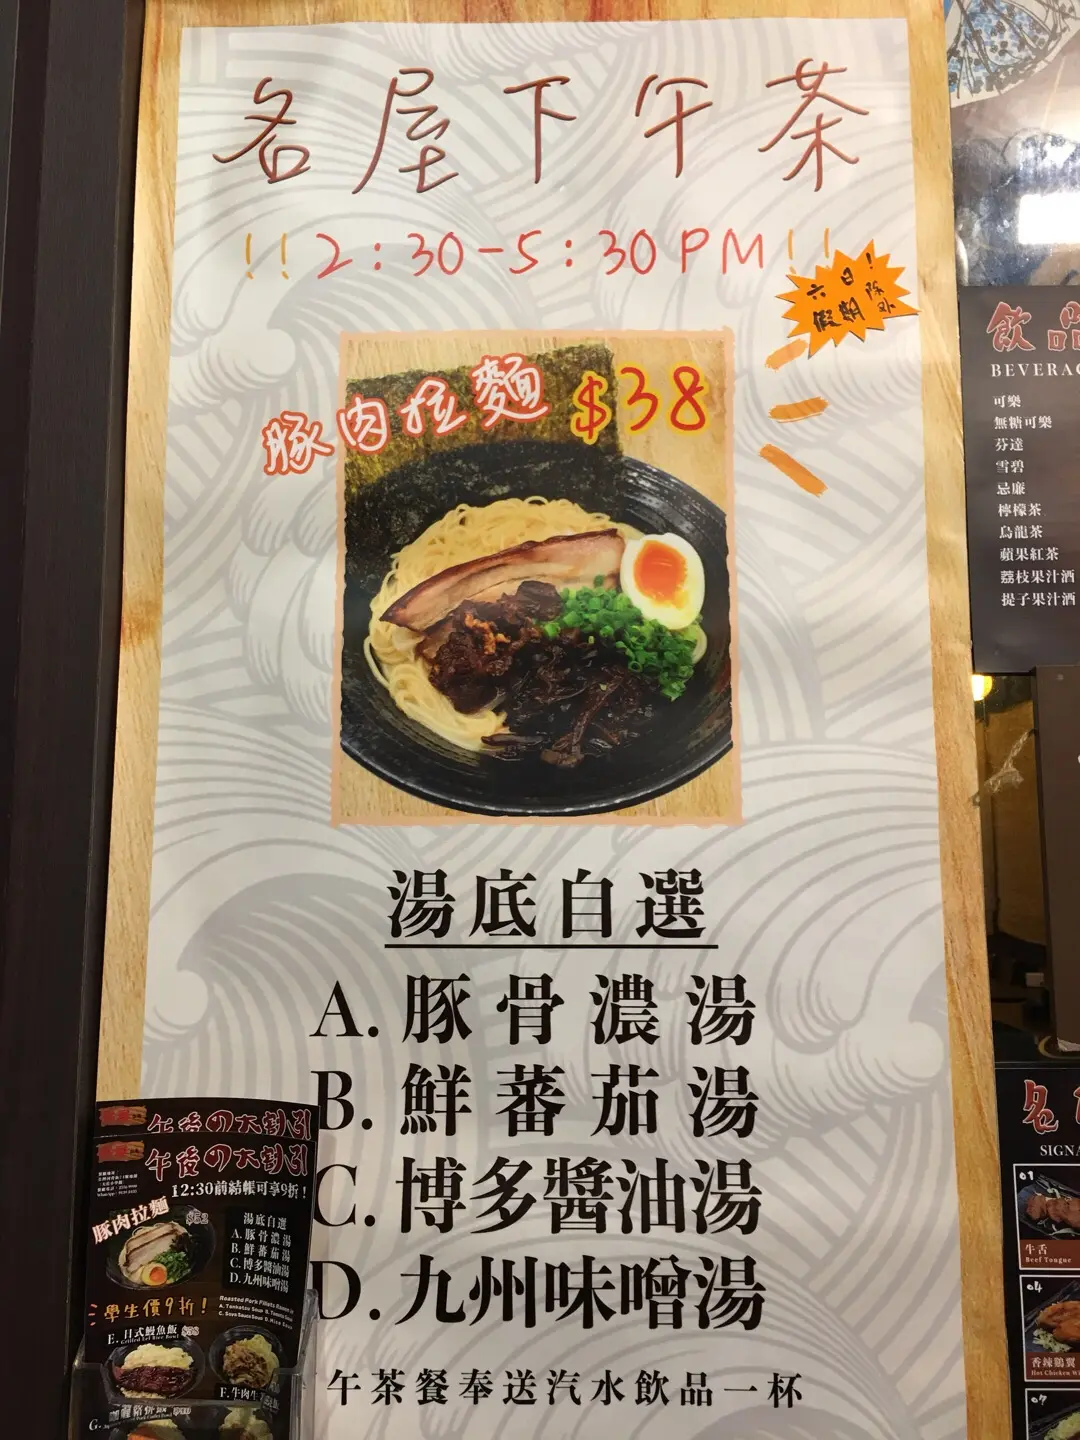 名屋下午茶
!!2:30-5:30PM!!
六日!
假期除外
豚肉拉麵 $38
湯底自選
A.豚骨濃湯
B.鮮蕃茄湯
C.博多醬油湯
D.九州味噌湯
午茶餐奉送汽水飲品一杯
午後の大割引
午後の大割引
12:30前結帳可享9折!
豚肉拉麵
湯底自選
A.豚骨濃湯
B.鮮蕃茄湯
C.博多醬油湯
D.九州味噌湯
學生價9折!
E.日式鰻魚飯 $58
F.牛肉
飲品
BEVERAG
可樂
無糖可樂
芬達
雪碧
忌廉
檸檬茶
烏龍茶
蘋果紅茶
荔枝果汁酒
提子果汁酒
名
SIGNA
01
牛舌
Beef Tongue
04
香辣鷄翼
Hot Chicken Wi
07